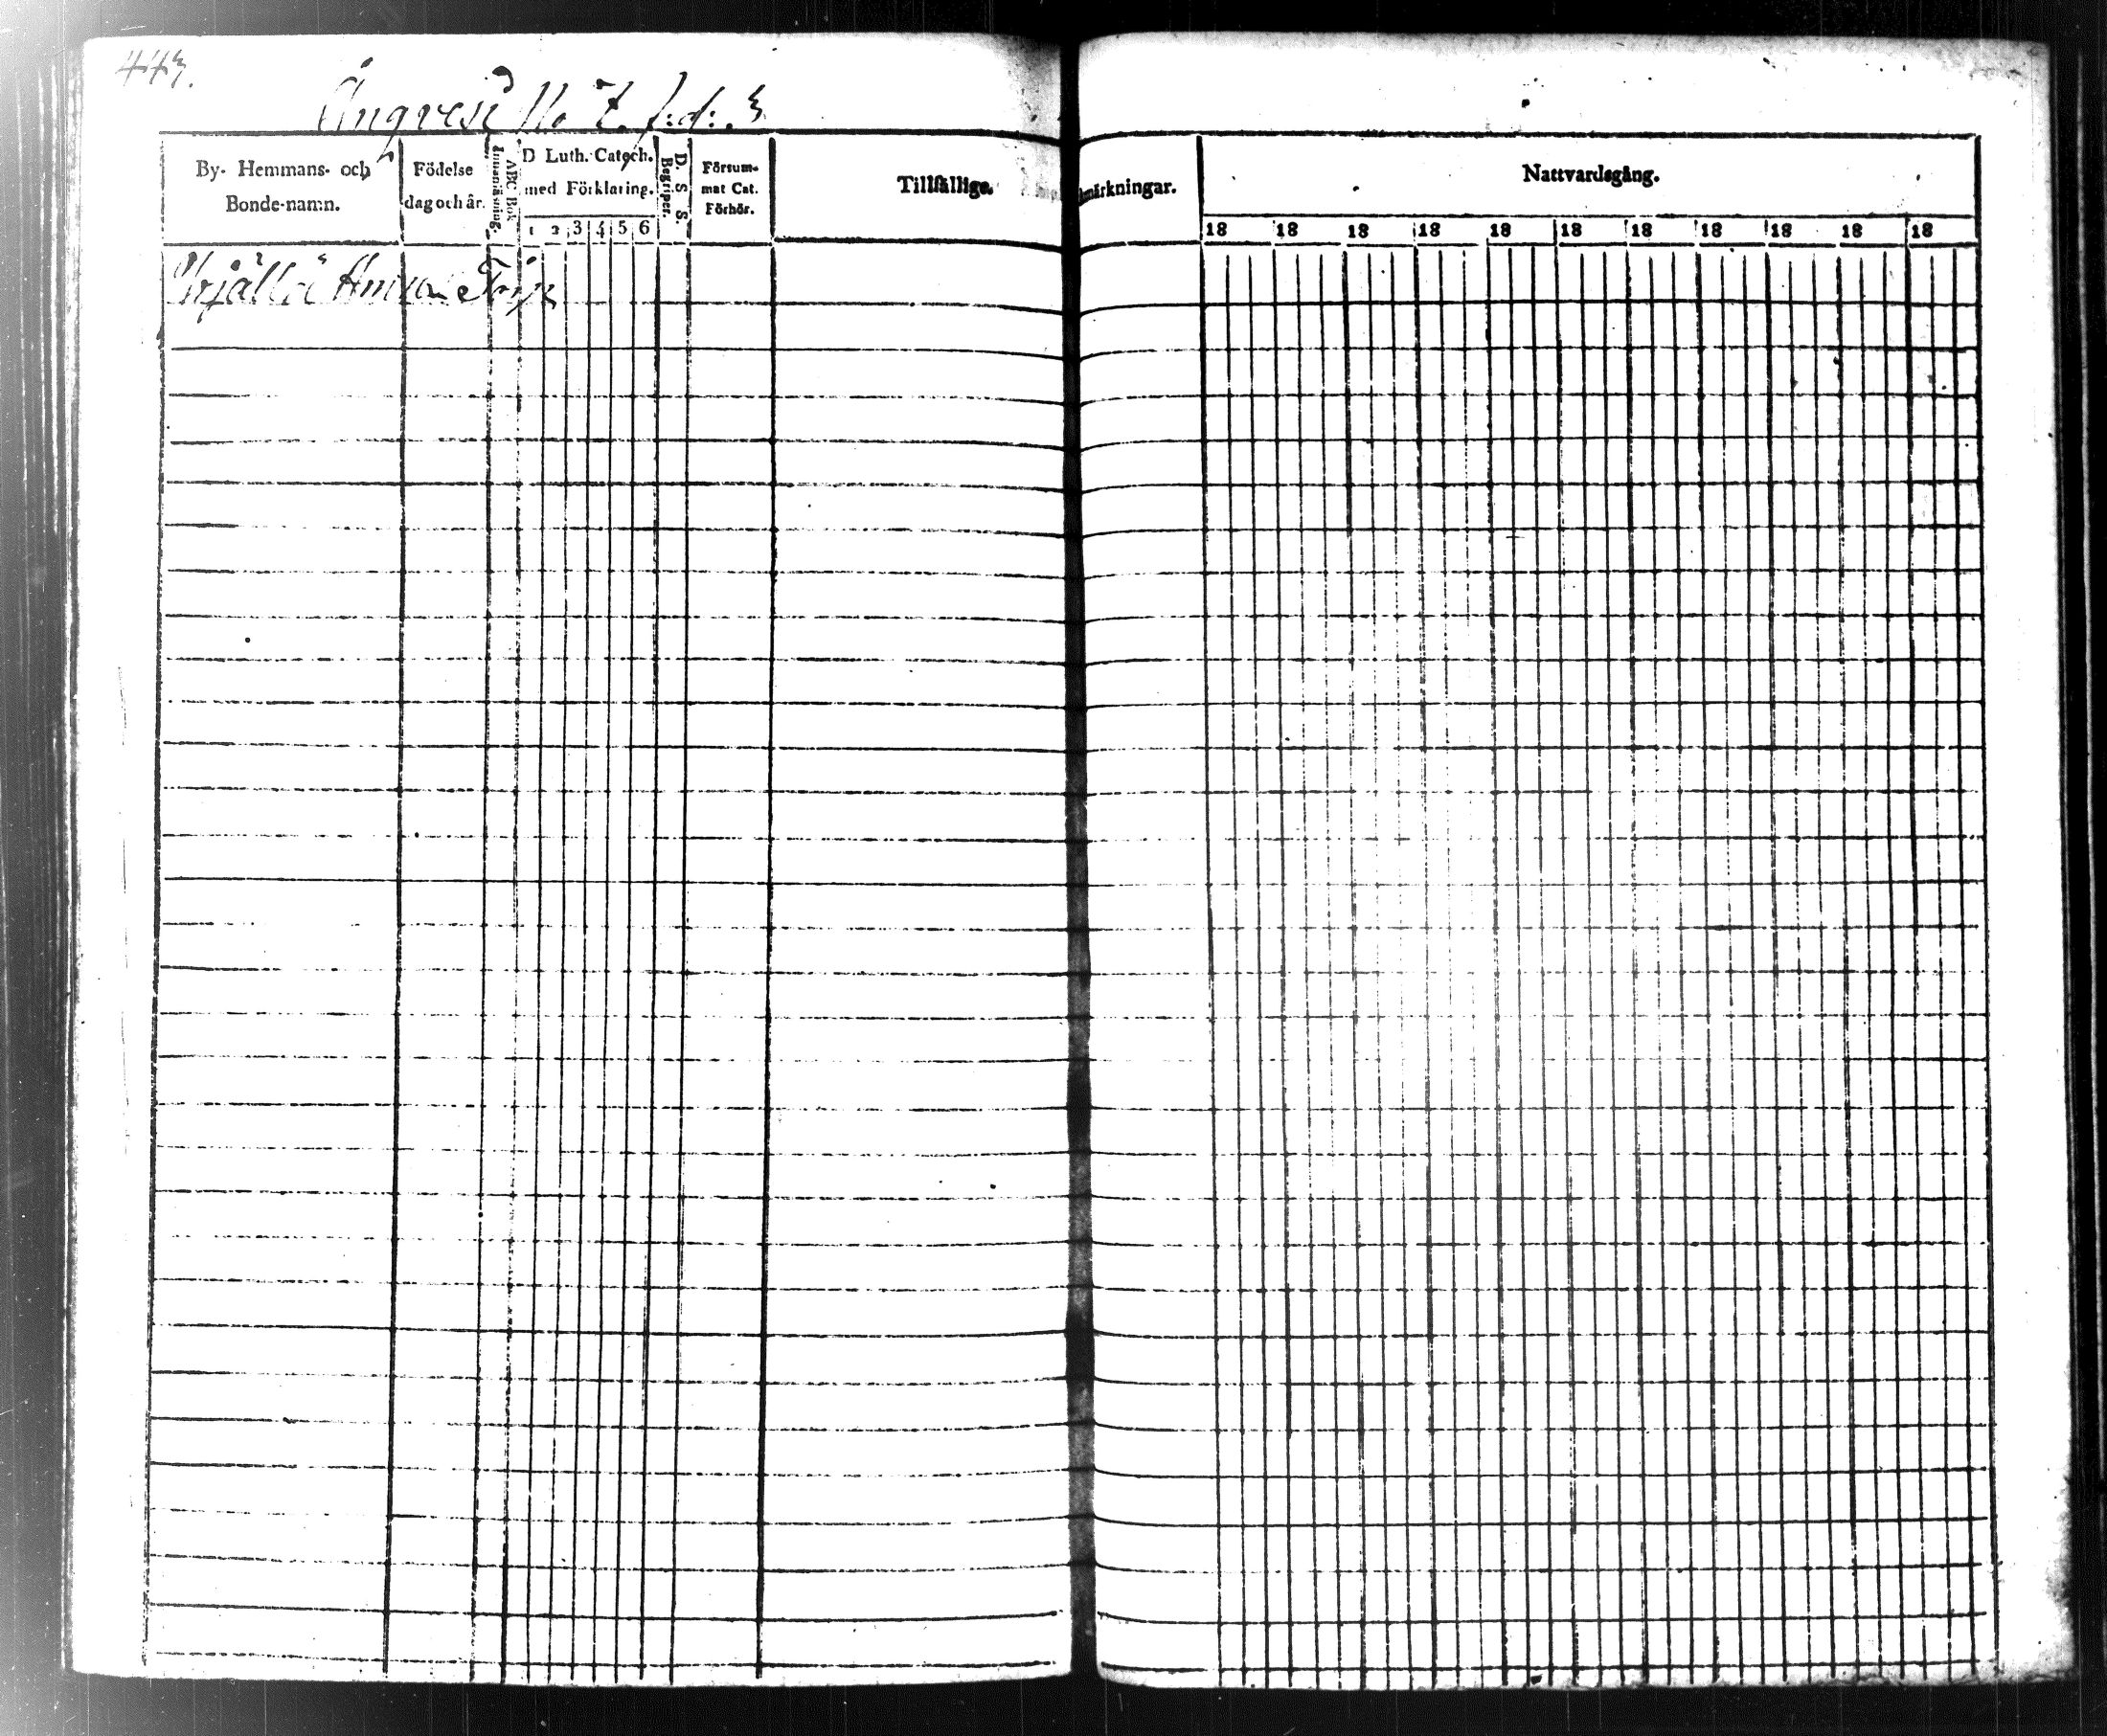 443.
Ångvesi No 7. f:d: 3
By- Hemmans- och
Bonde-namn.
Födelse
dag och år.
Innanläsning.
ABC Bok
D Luth. Catech.
med Förklaring.
1 2 3 4 5 6
D. S. S.
Begriper.
Försum-
mat Cat.
Förhör.
Tillfällige
Anmärkningar.
Nattvardsgång.
18 18 18 18 18 18 18 18 18 18 18
Torp